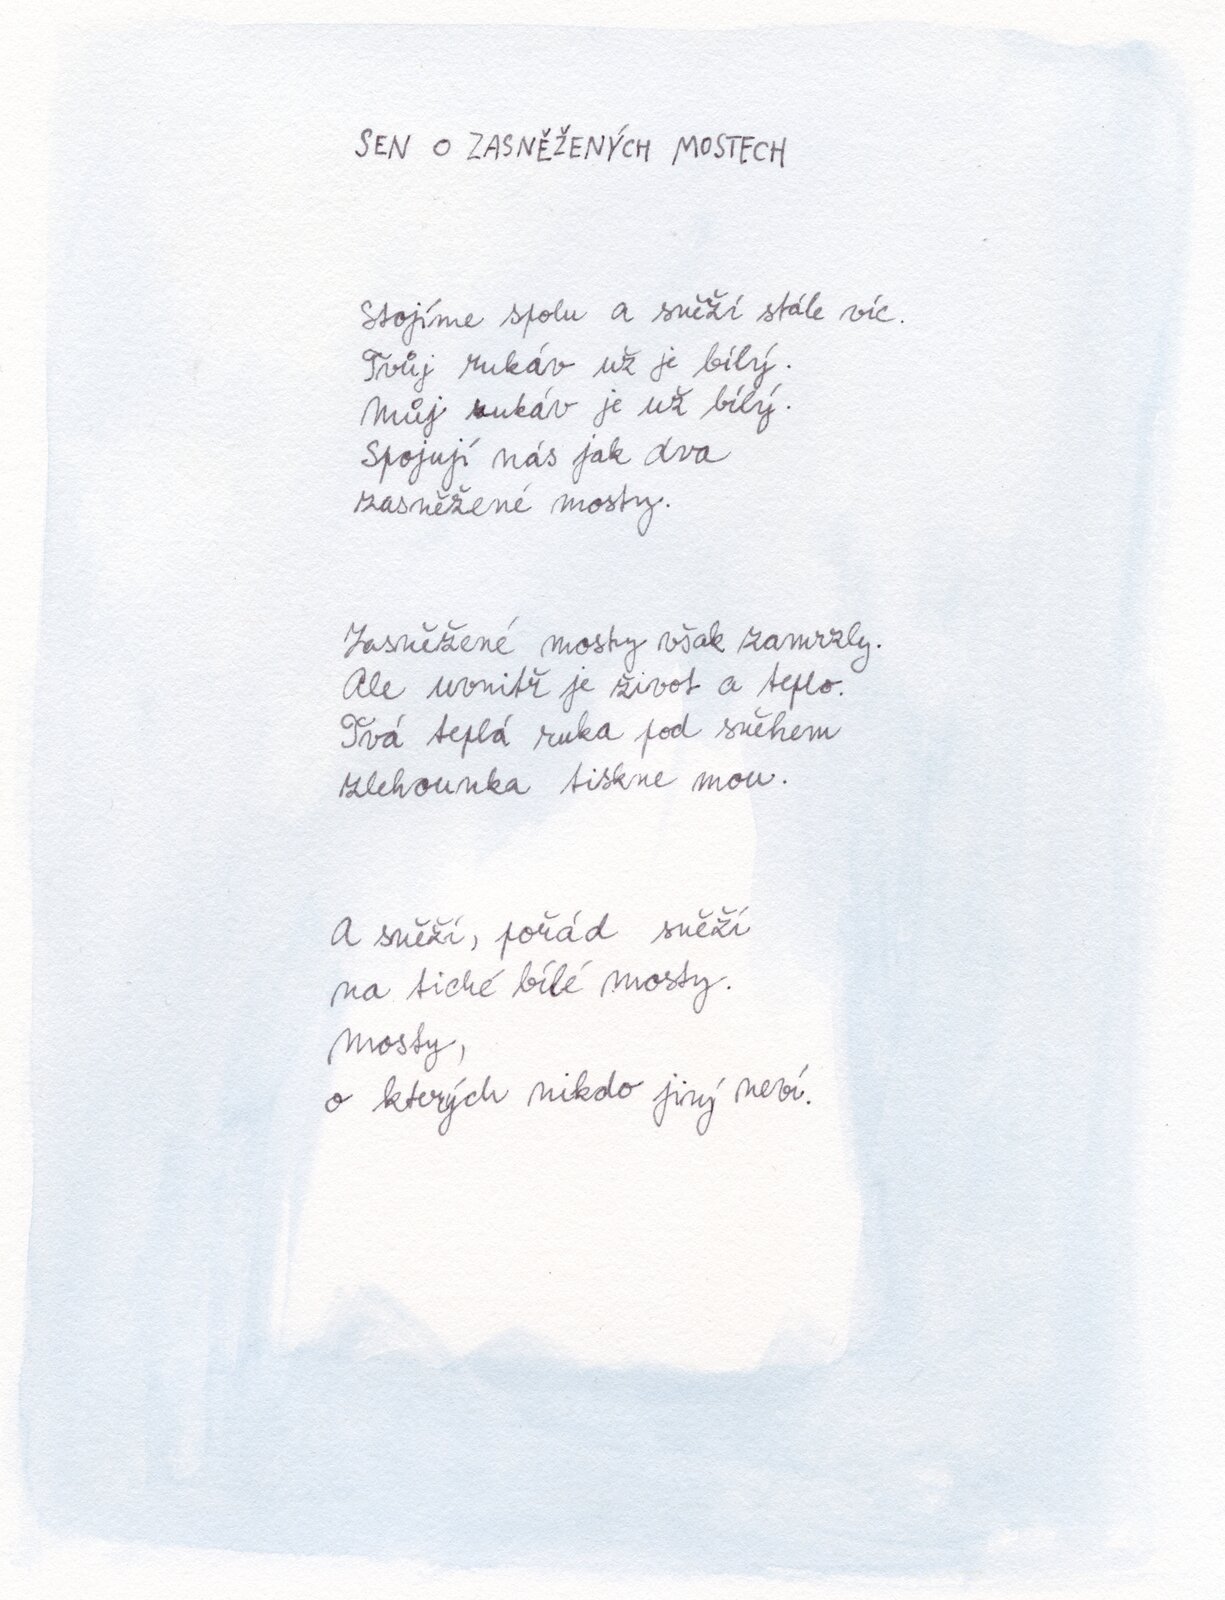 SEN O ZASNĚŽENÝCH MOSTECH
Stojíme spolu a sněží stále víc.
Tvůj rukáv už je bílý.
Můj rukáv je už bílý.
Spojují nás jak dva
zasněžené mosty.
Zasněžené mosty však zamrzly.
Ale uvnitř je život a teplo.
Tvá teplá ruka pod sněhem
zlehounka tiskne mou.
A sněží, pořád sněží
na tiché bílé mosty.
Mosty,
o kterých nikdo jiný neví.